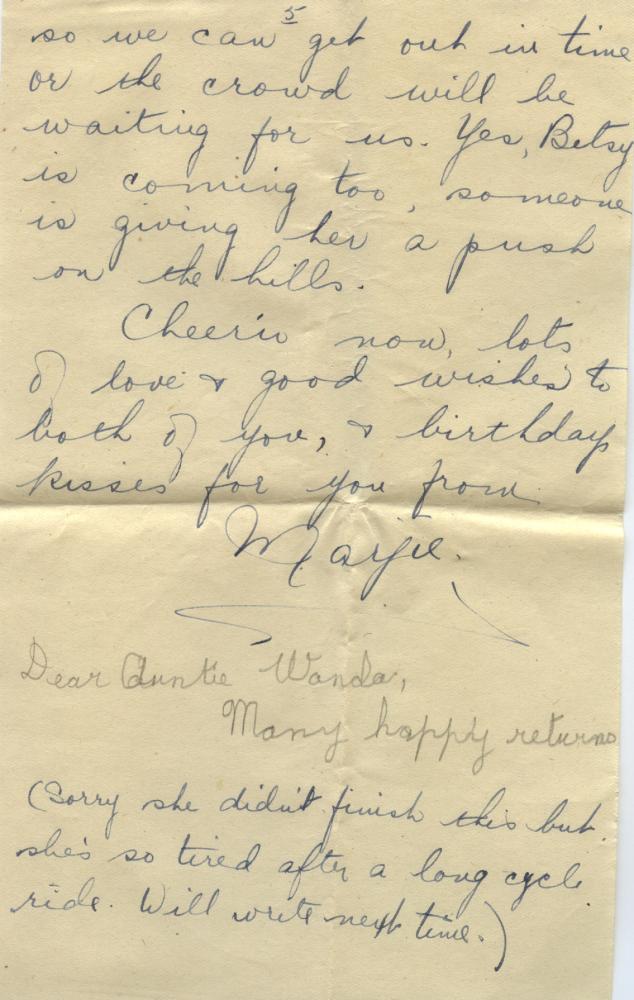 5
so we can get out in time
or the crowd will be
waiting for us. Yes, Betsy
is coming too, someone
is giving her a push
on the hills.
Cheerio now, lots
of love & good wishes to
both of you, & birthday
kisses for you from
Marjie.
Dear Auntie Wanda,
Many happy returns
(Sorry she didn't finish this but
she's so tired after a long cycle
ride. Will write next time.)